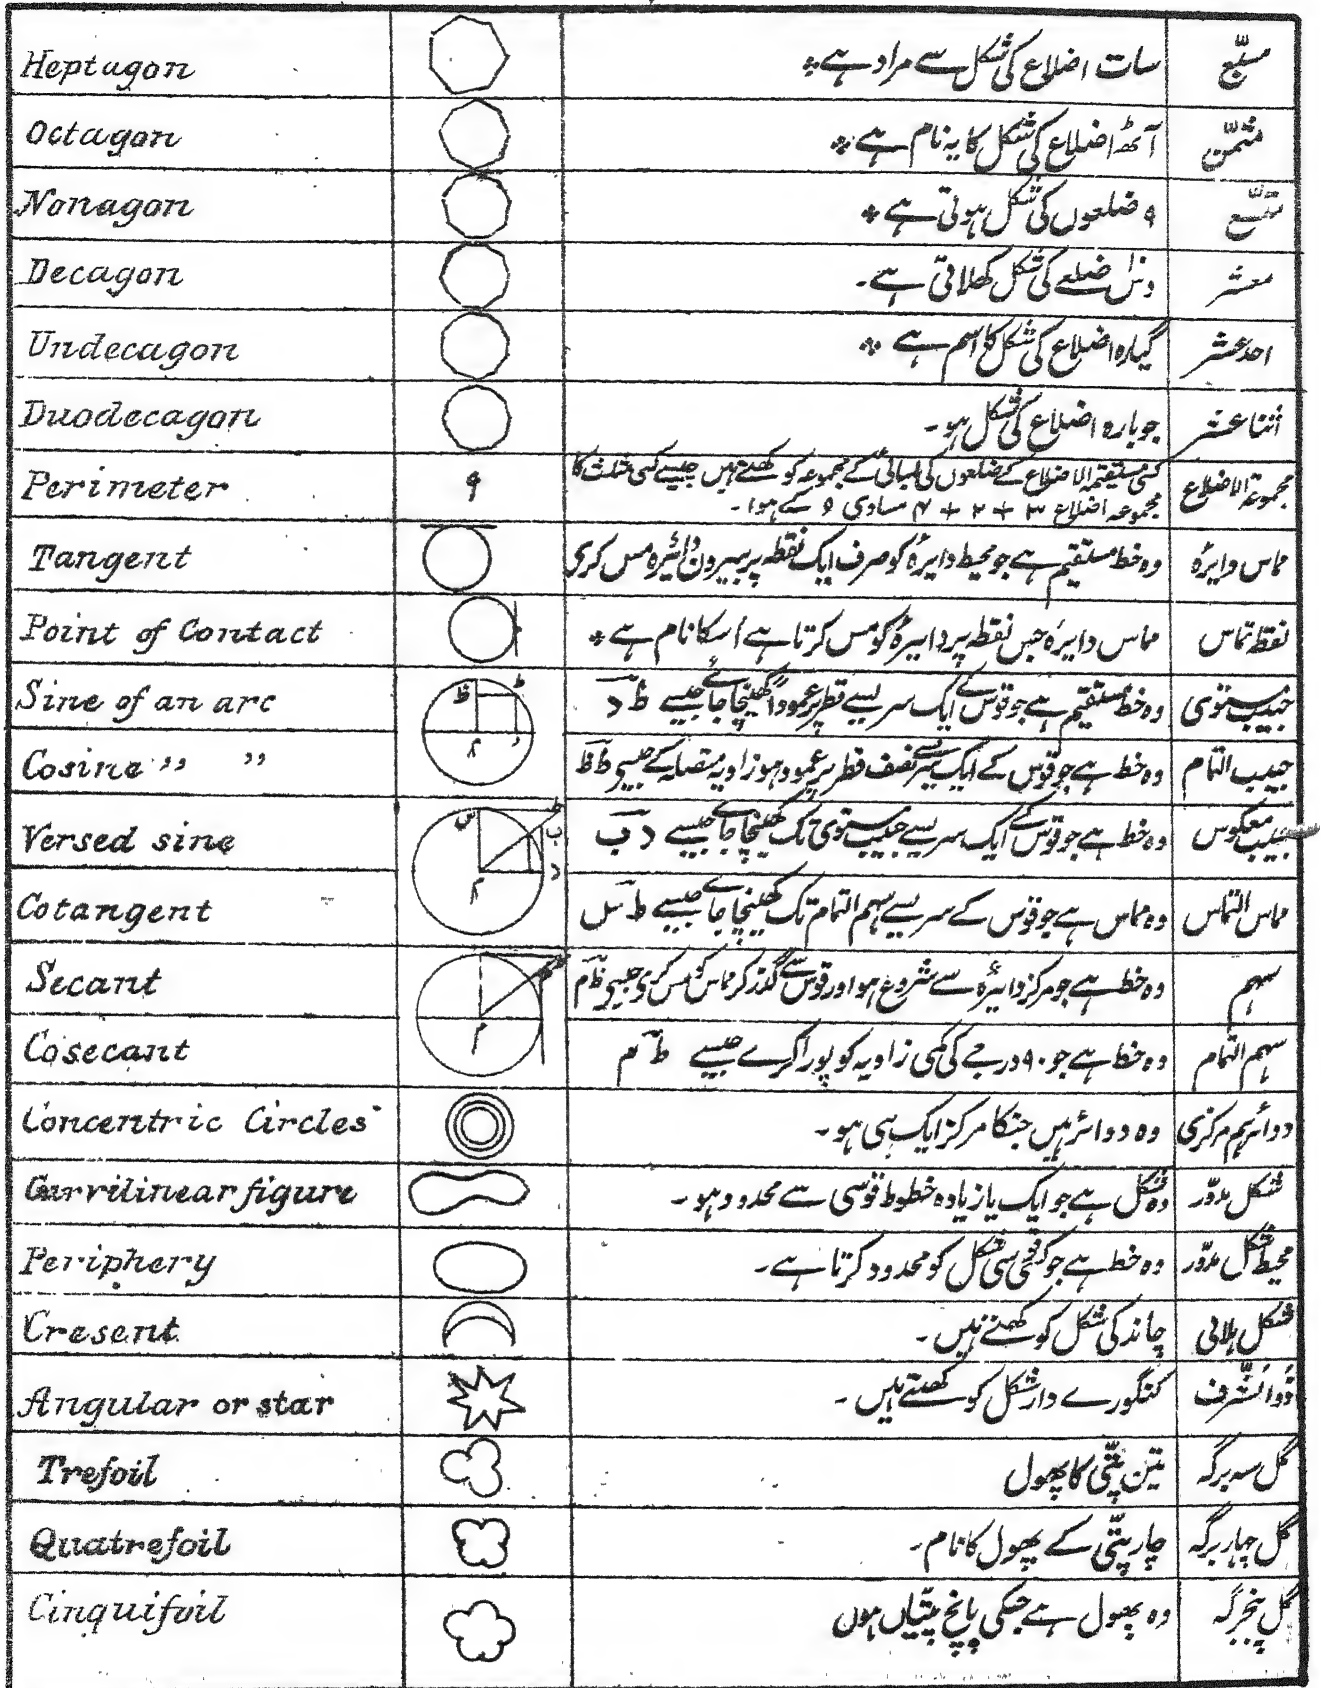 Heptagon سات اضلاع کی شکل سے مراد ہے٭ مسبّع
Octagon آٹھ اضلاع کی شکل کا یہ نام ہے٭ مثمّن
Nonagon ۹ ضلعوں کی شکل ہوتی ہے٭ متسّع
Decagon دس ضلعے کی شکل کھلاتی ہے۔ معشر
Undecagon گیارہ اضلاع کی شکل کا اسم ہے٭ احد عشر
Duodecagon جو بارہ اضلاع کی شکل ہو۔ اثنا عشر
Perimeter ۹ کسی مستقیمۃ الاضلاع کے ضلعوں کی لمبائی کے مجموعہ کو کھتے ہیں جیسے کسی مثلث کا مجموعۃ الاضلاع
مجموعہ اضلاع ۳ + ۲ + ۴ مساوی ۹ کے ہوا۔
Tangent وہ خط مستقیم ہے جو محیط دایرہ کو صرف ایک نقطہ پر بیرون دائیرہ مس کری مماس دایرہ
Point of Contact مماس دایرہ جس نقطہ پر دایرہ کو مس کرتا ہے اسکا نام ہے٭ نقطہ تماس
Sine of an arc ظ ط م د وہ خط مستقیم ہے جو قوس کے ایک سر سے قطر پر عموداً کھینچا جائے جیسے ط د جیب مستوی
Cosine ,, ,, وہ خط ہے جو قوس کے ایک سر سے نصف قطر پر عمود ہو زاویہ متصلہ کے جیسے ط ظ جیب التمام
Versed sine س ط ب د م وہ خط ہے جو قوس کے ایک سر سے جیب مستوی تک کھینچا جائے جیسے د ب جیب معکوس
Cotangent وہ مماس ہے جو قوس کے سر سے سہم التمام تک کھینچا جائے جیسے ط س مماس التماس
Secant م وہ خط ہے جو مرکز دایرہ سے شروع ہو اور قوس سے گذر کر مماس کو مس کری جیسے ظ م سہم
Cosecant وہ خط ہے جو ۹۰ درجے کی کمی زاویہ کو پورا کرے جیسے ط م سہم التمام
Concentric Circles وہ دوائر ہیں جنکا مرکز ایک ہی ہو۔ دوائر ہم مرکزی
Curvilinear figure وہ شکل ہے جو ایک یا زیادہ خطوط قوسی سے محدود ہو۔ شکل مدوّر
Periphery وہ خط ہے جو کہ قوسی شکل کو محدود کرتا ہے۔ محیط شکل مدوّر
Cresent چاند کی شکل کو کھتے ہیں۔ شکل ہلالی
Angular or star کنگورے دار شکل کو کھتے ہیں۔ ذو الشرف
Trefoil تین پتّی کا پھول گل سہ برگہ
Quatrefoil چار پتّی کے پھول کا نام۔ گل چہار برگہ
Cinquifoil وہ پھول ہے جسکی پانچ پتیاں ہوں گل پنجبرگہ